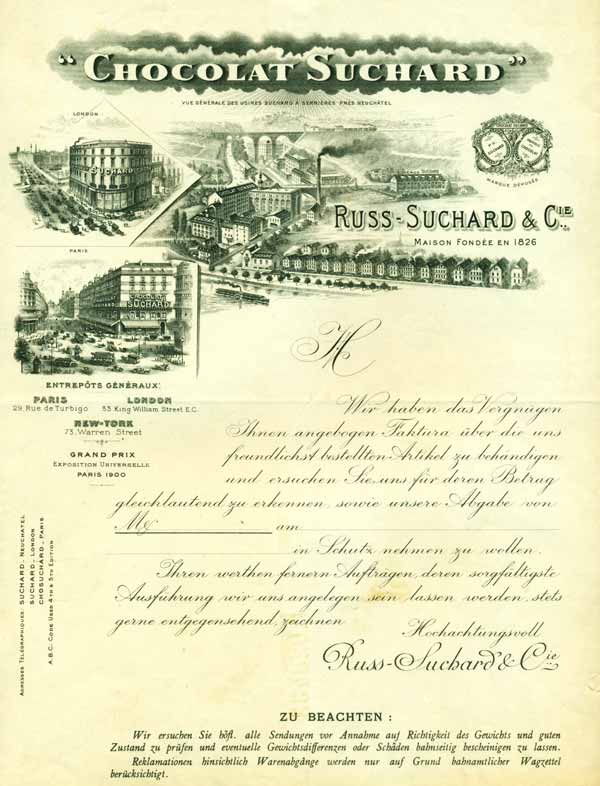 "CHOCOLAT SUCHARD"
VUE GÉNÉRALE DES USINES SUCHARD À SERRIÈRES PRÈS NEUCHÂTEL
LONDON
SUCHARD
MARQUE DÉPOSÉE
RUSS-SUCHARD & CIE.
MAISON FONDÉE EN 1826
PARIS
CHOCOLAT
SUCHARD
H
ENTREPÔTS GÉNÉRAUX:
PARIS LONDON
29, Rue de Turbigo 33 King William Street E.C.
NEW-YORK
73, Warren Street
GRAND PRIX
EXPOSITION UNIVERSELLE
PARIS 1900
Wir haben das Vergnügen
Ihnen angebogen Faktura über die uns
freundlichst bestellten Artikel zu behändigen
und ersuchen Sie, uns für deren Betrag
gleichlautend zu erkennen, sowie unsere Abgabe von
M am
in Schutz nehmen zu wollen.
Ihren werthen fernern Aufträgen, deren sorgfältigste
Ausführung wir uns angelegen sein lassen werden, stets
gerne entgegensehend, zeichnen
Hochachtungsvoll
Russ-Suchard & Cie
ADRESSES TÉLÉGRAPHIQUES: SUCHARD, NEUCHATEL
SUCHARD, LONDON
CHOSUCHARD, PARIS
A.B.C. CODE USED 4TH & 5TH EDITION
ZU BEACHTEN:
Wir ersuchen Sie höfl. alle Sendungen vor Annahme auf Richtigkeit des Gewichts und guten
Zustand zu prüfen und eventuelle Gewichtsdifferenzen oder Schäden bahnseitig bescheinigen zu lassen.
Reklamationen hinsichtlich Warenabgänge werden nur auf Grund bahnamtlicher Wagzettel
berücksichtigt.